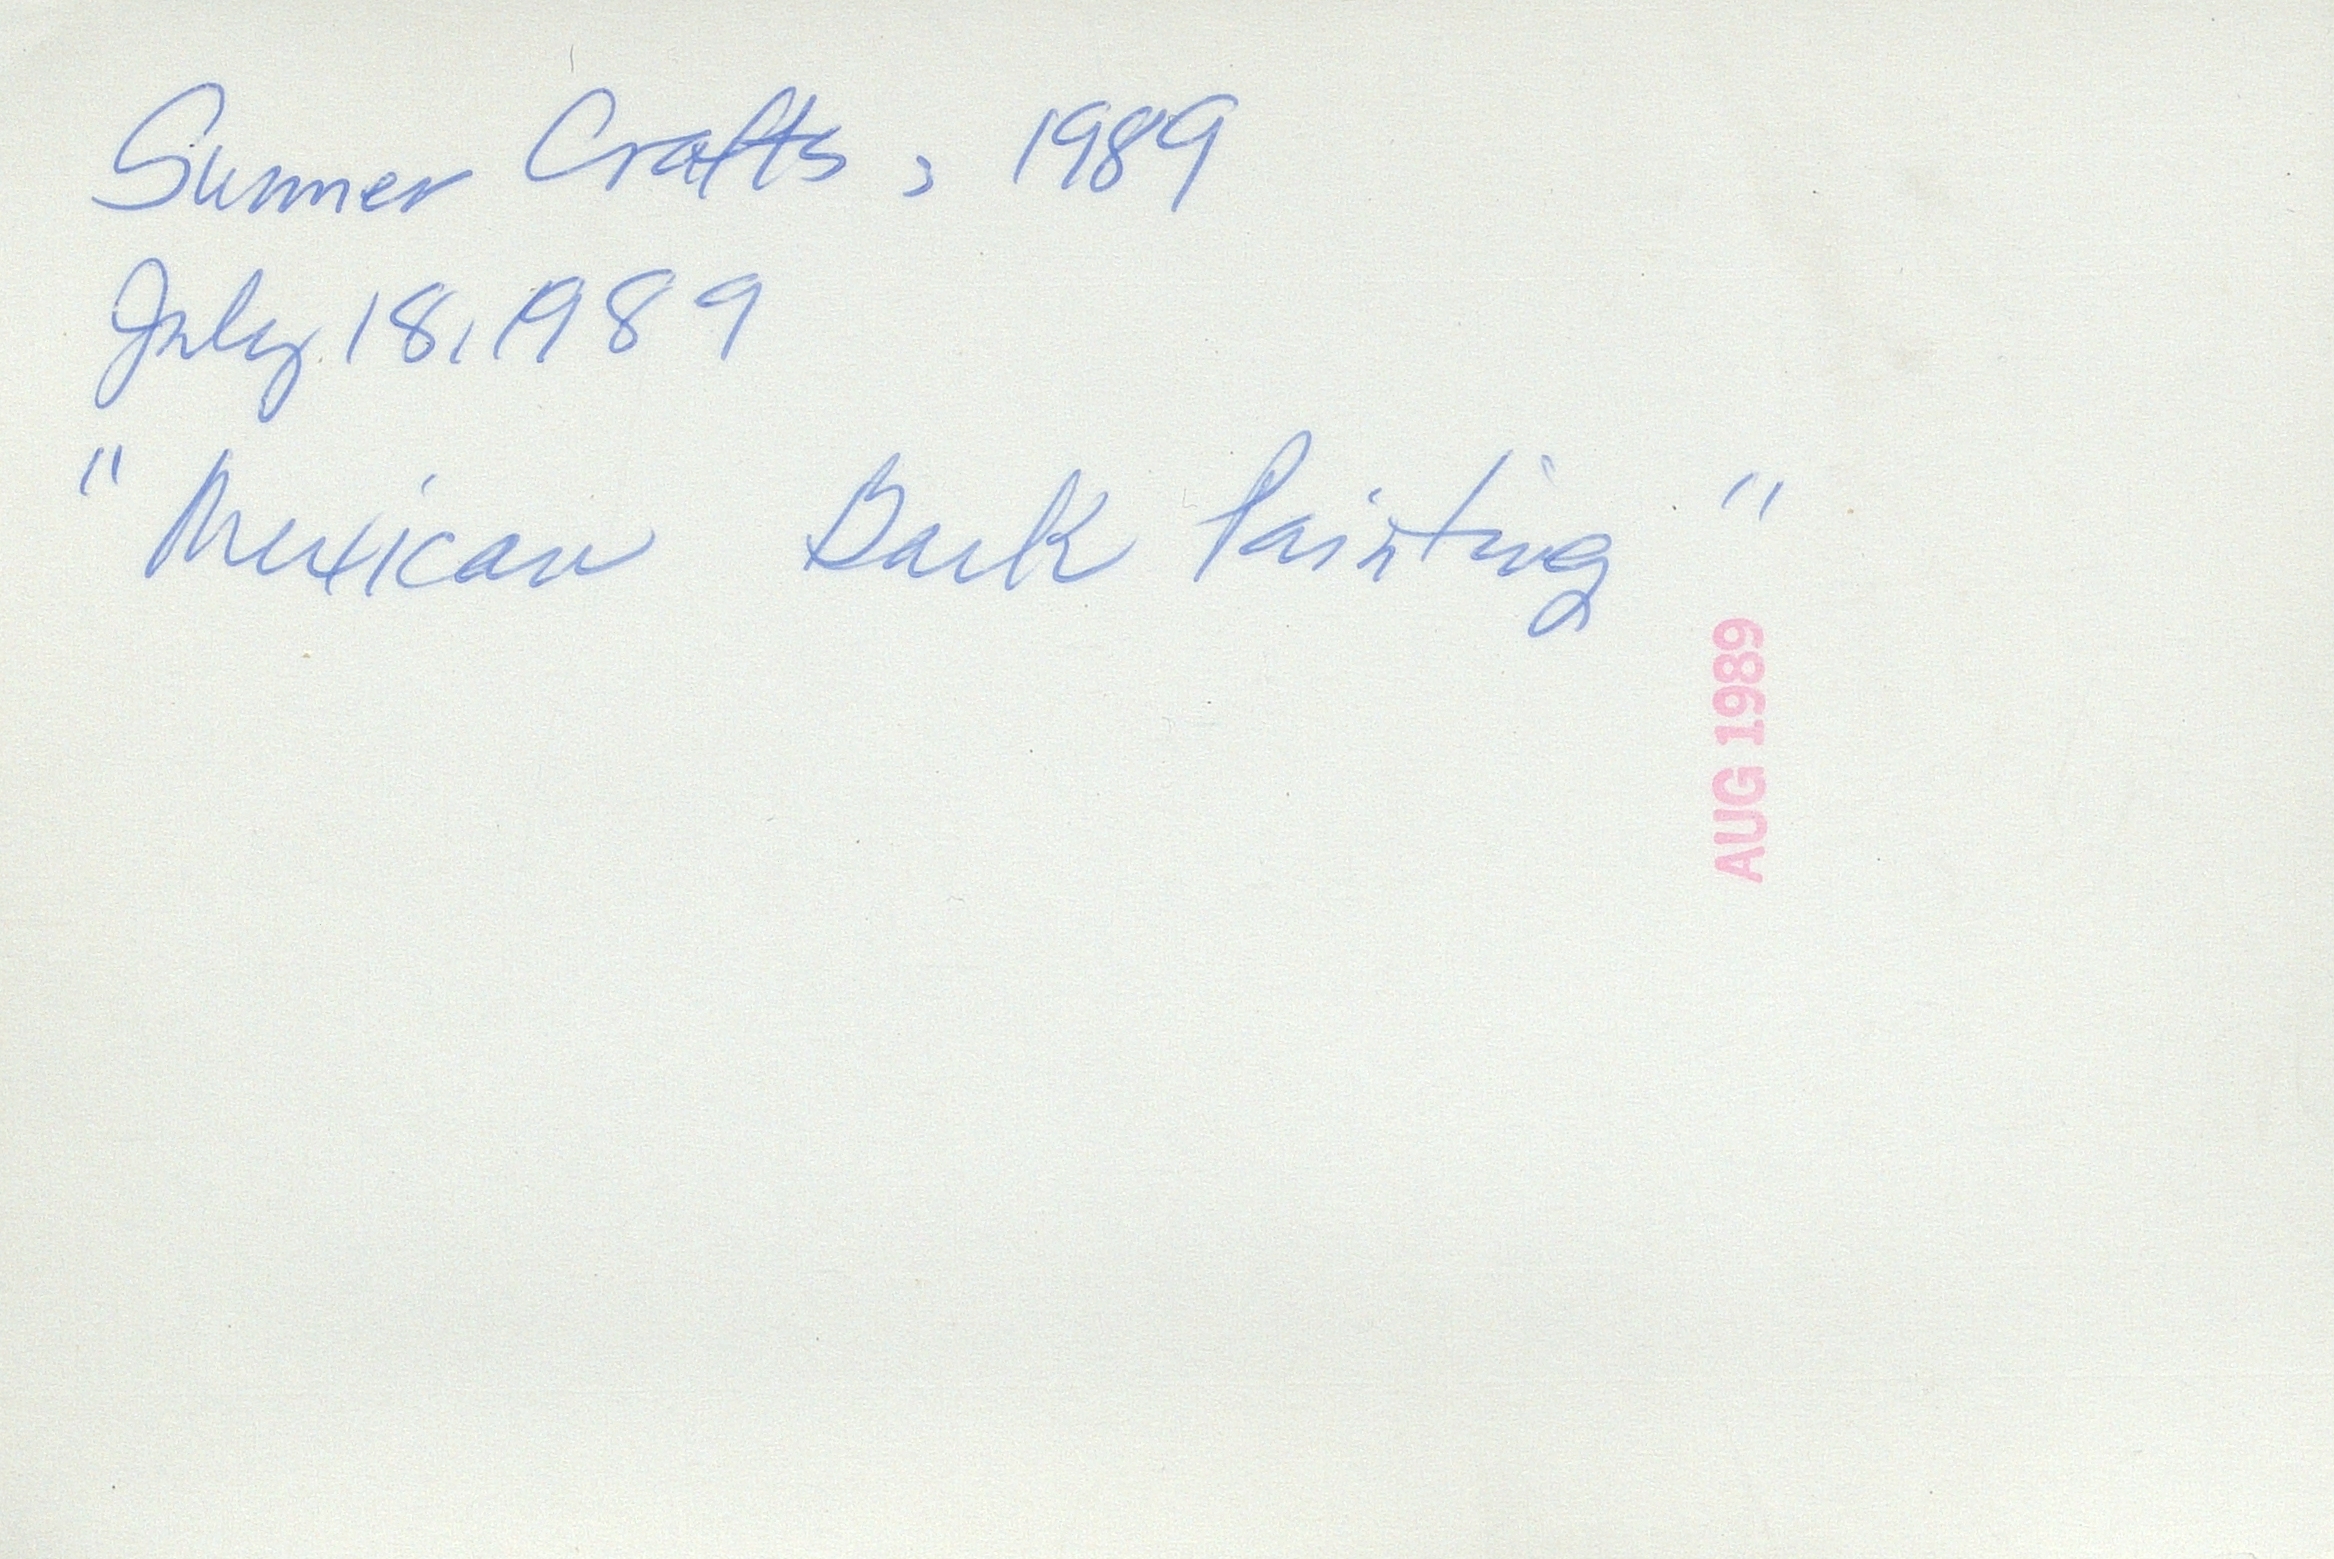 Summer Crafts, 1989
July 18, 1989
"Mexican Bark Painting"
AUG 1989